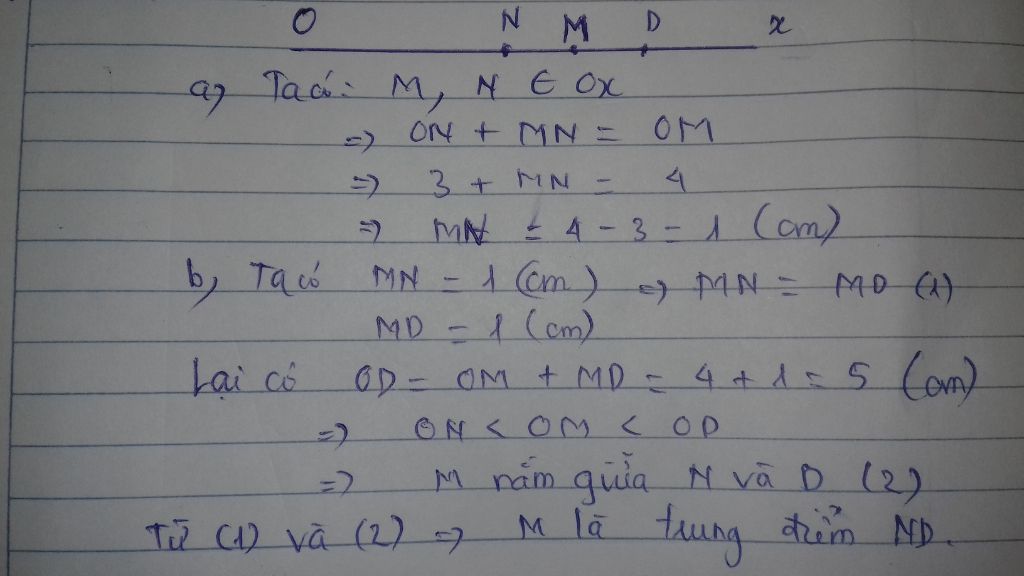 O N M D x
a, Ta có: M, N ∈ Ox
=> ON + MN = OM
=> 3 + MN = 4
=> MN = 4 - 3 = 1 (cm)
b, Ta có MN = 1 (cm) => MN = MD (1)
MD = 1 (cm)
Lại có OD = OM + MD = 4 + 1 = 5 (cm)
=> ON < OM < OD
=> M nằm giữa N và D (2)
Từ (1) và (2) => M là trung điểm ND.